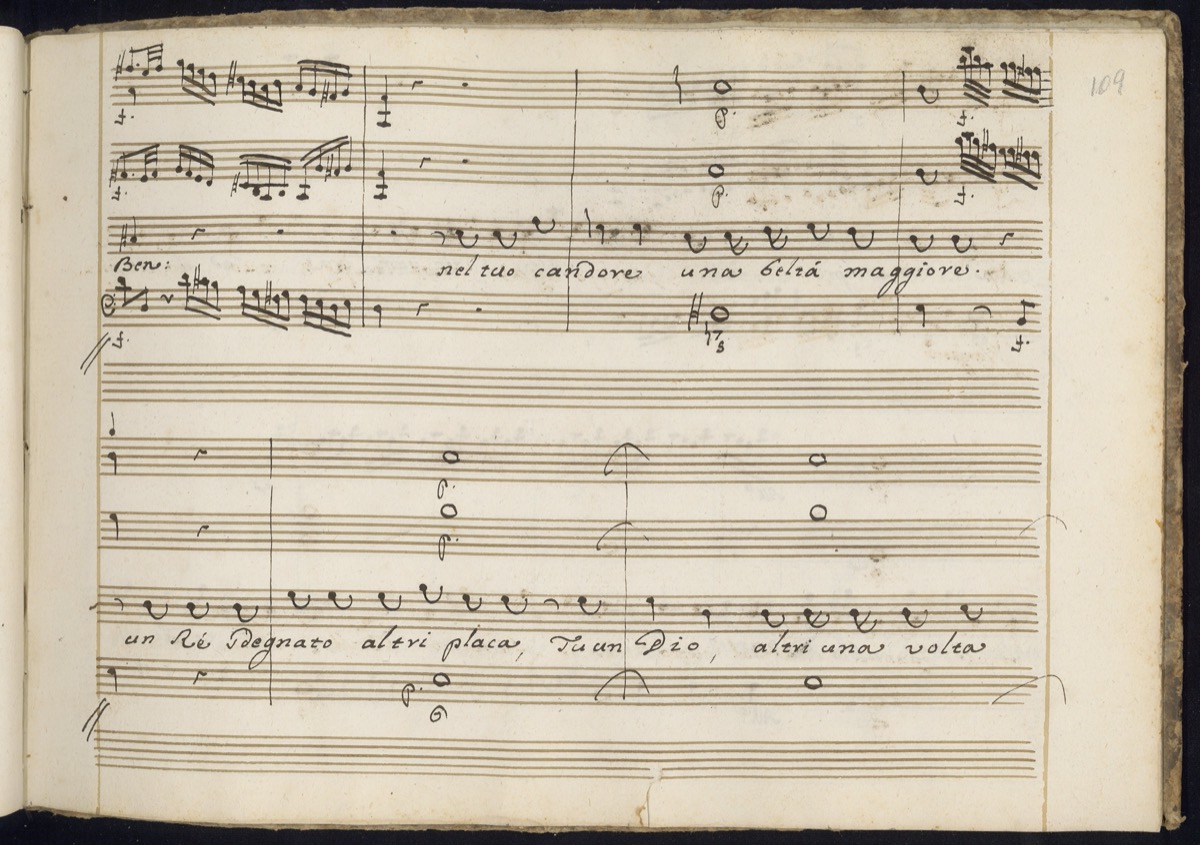 109
f. f.
p.
f. f.
p.
Ben: nel tuo candore una beltá maggiore.
f. f.
p.
p.
un Ré Sdegnato altri placa, Tu un Dio, altri una volta
p.
6